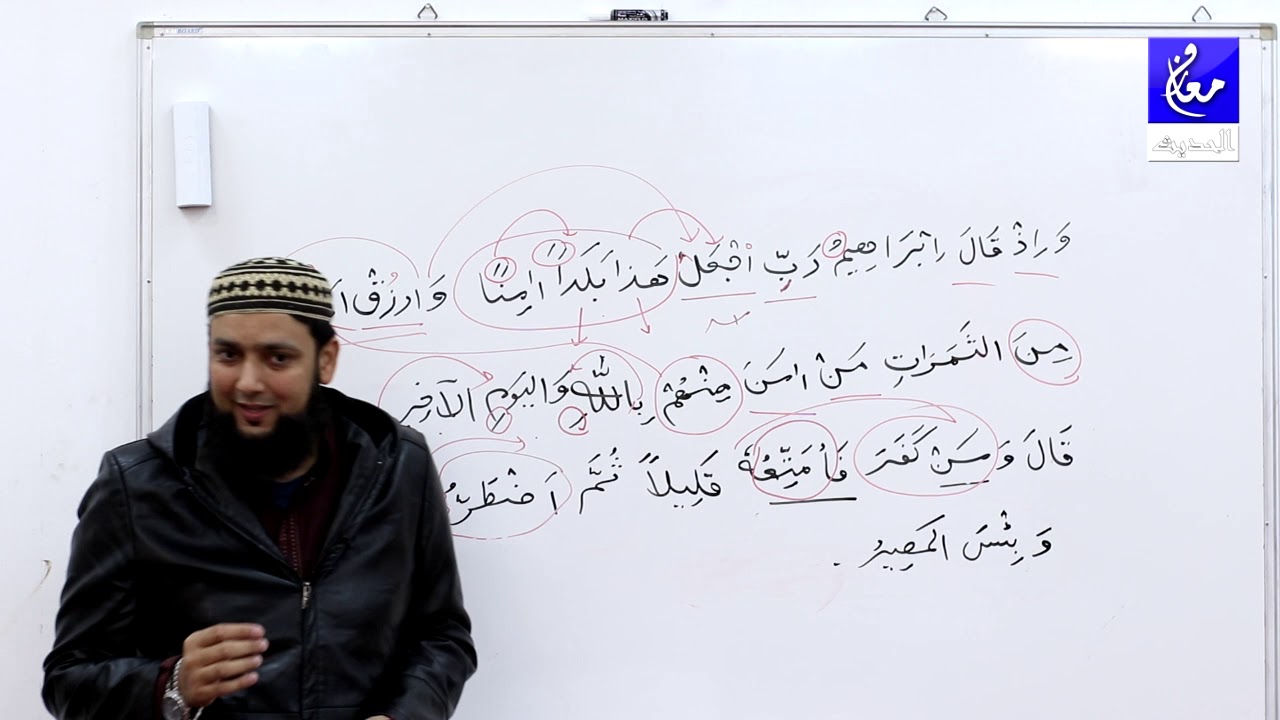 معارف
الحديث
وَاِذْ قَالَ اِبْرَاهِيمُ رَبِّ اجْعَلْ هَذَا بَلَدًا اٰمِنًا وَارْزُقْ
مِنَ الثَّمَرَاتِ مَنْ اٰمَنَ مِنْهُمْ بِاللّٰهِ وَاليَوْمِ الآخِرِ
قَالَ وَمَنْ كَفَرَ فَاُمَتِّعُهُ قَلِيلاً ثُمَّ اَضْطَرُّ
وَبِئْسَ المَصِيرُ .